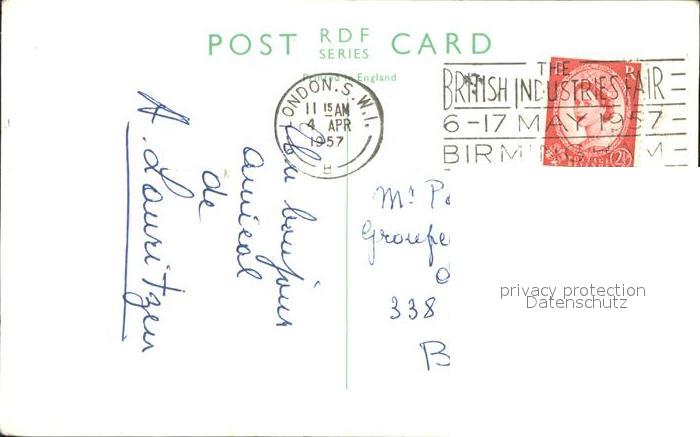 POST RDF SERIES CARD
Printed in England
LONDON. S.W.1.
11 15 AM
4 APR
1957
B
THE
BRITISH INDUSTRIES FAIR
6-17 MAY 1957
BIRM M
R
2½
Un bonjour
amical
de
A. Lauritzen
Mr P
Groupe
338
B
privacy protection
Datenschutz